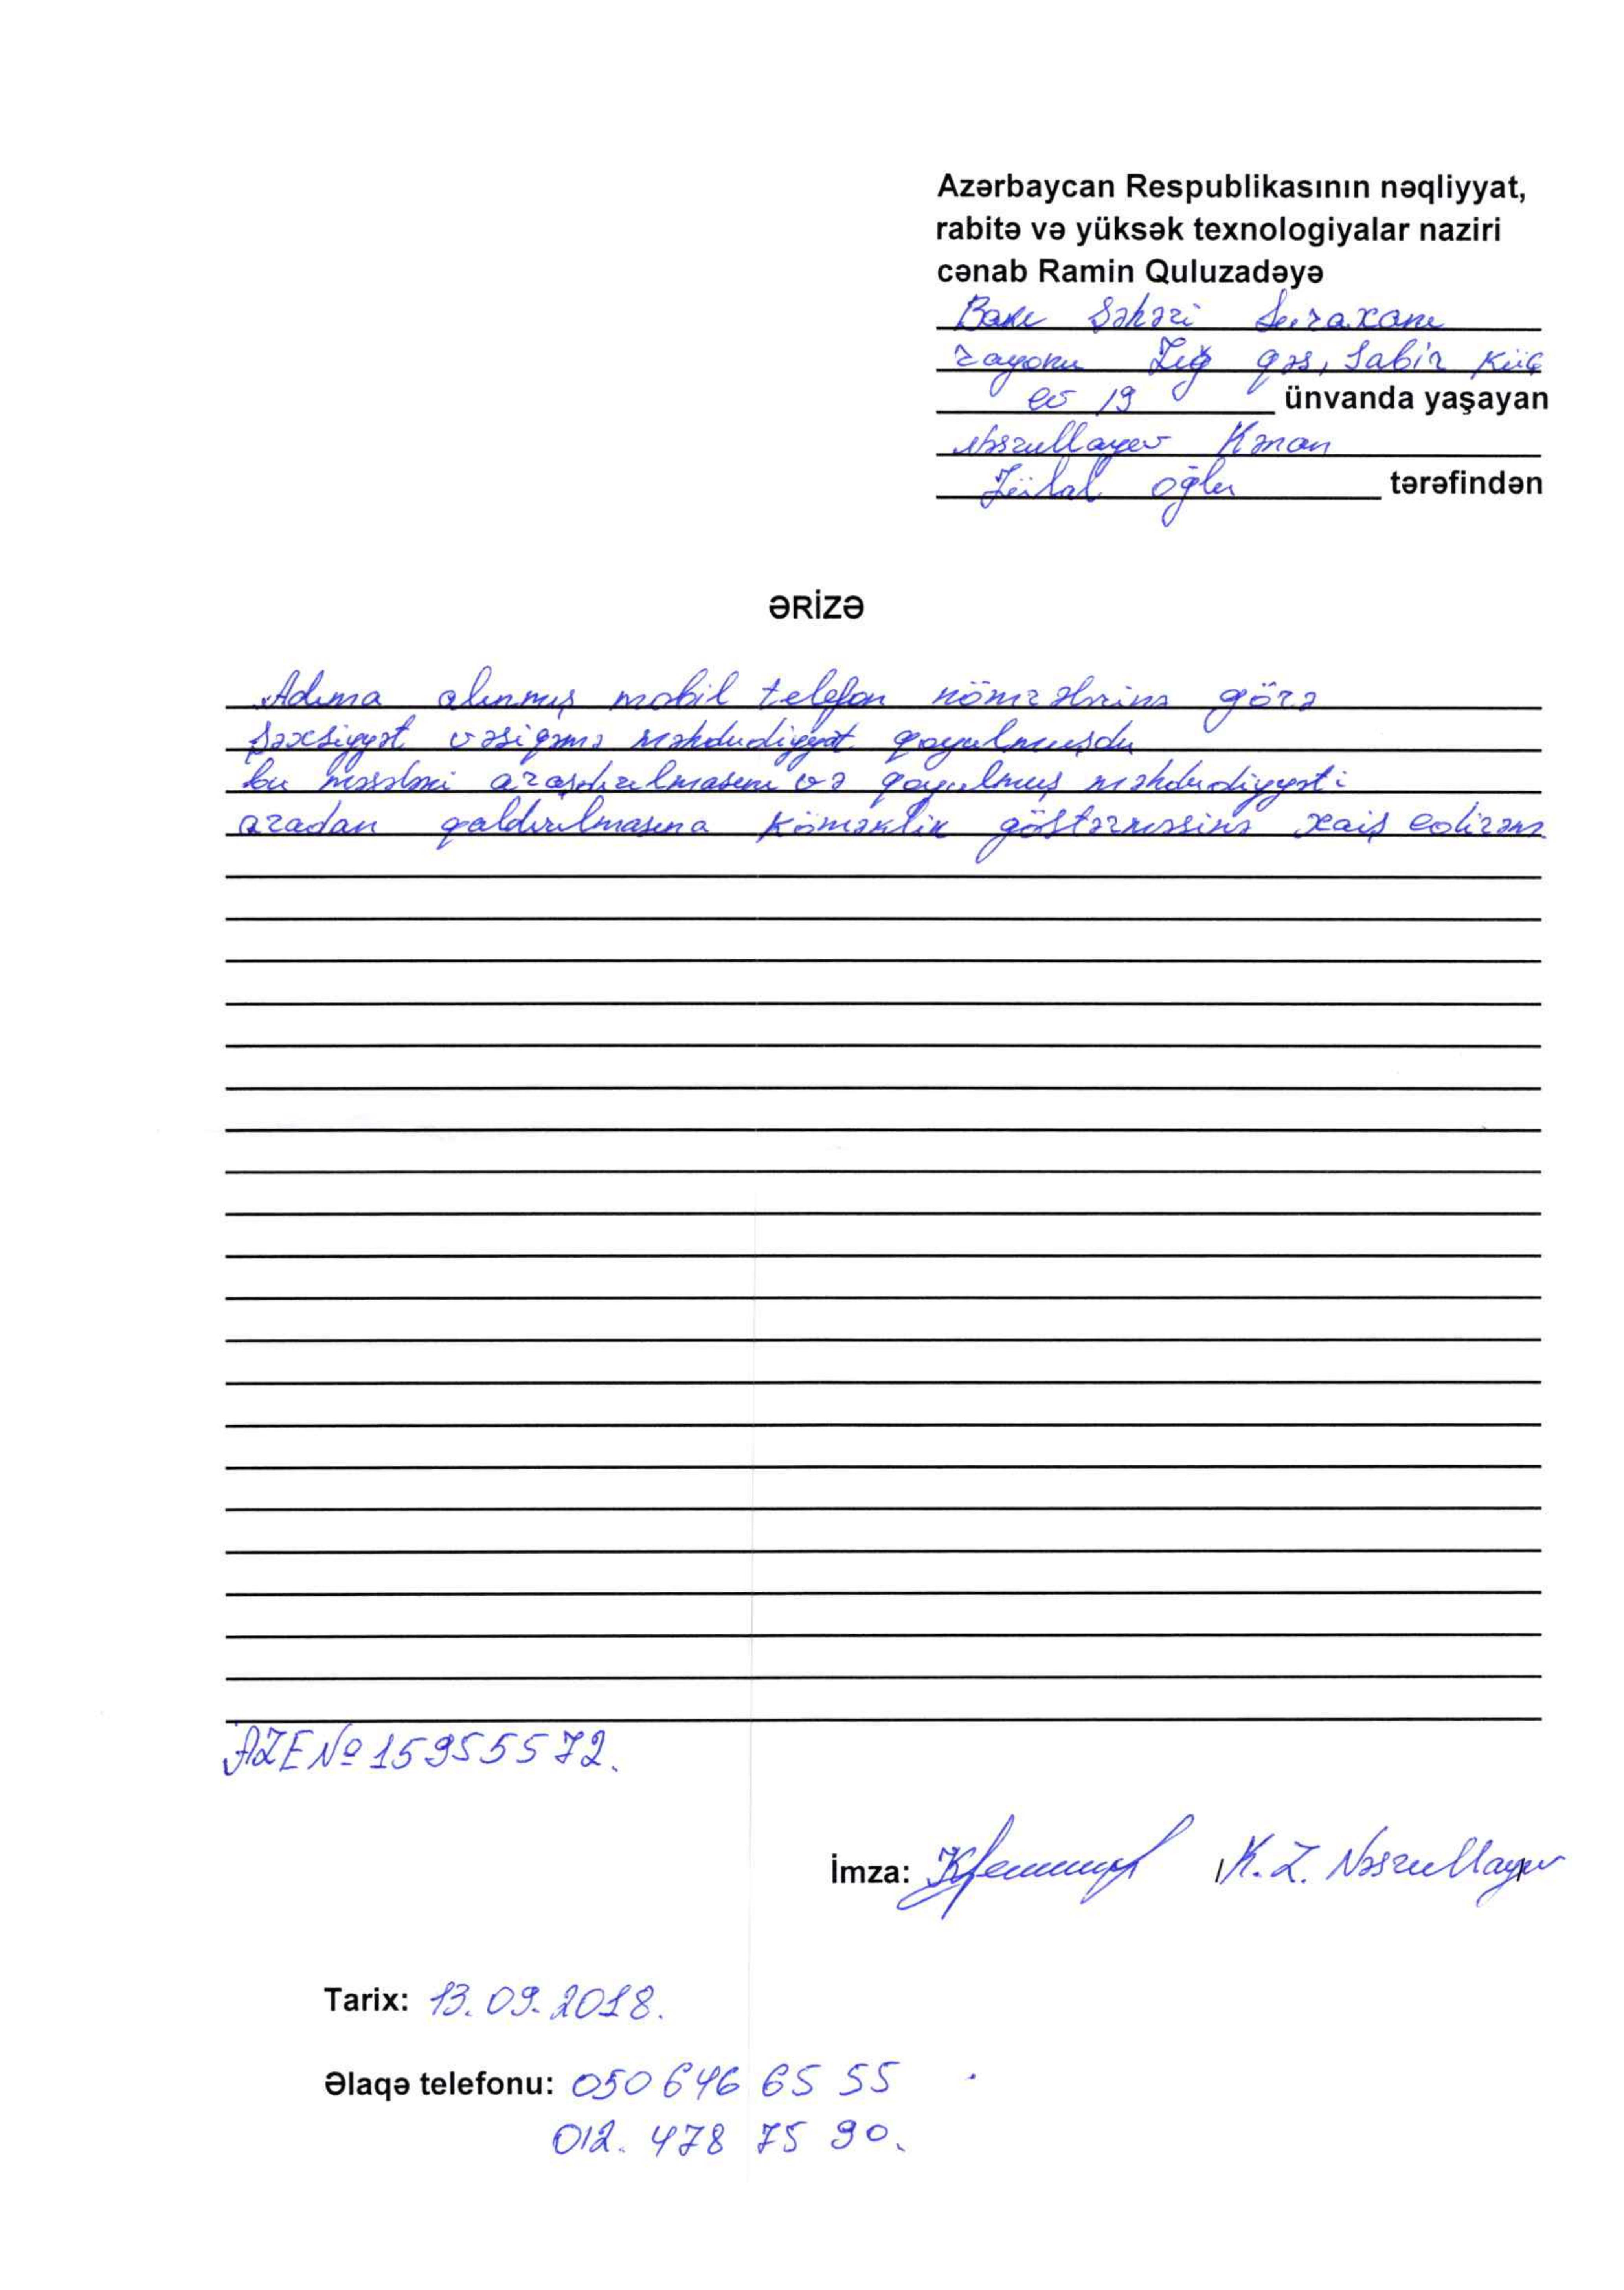 Azərbaycan Respublikasının nəqliyyat,
rabitə və yüksək texnologiyalar naziri
cənab Ramin Quluzadəyə
Bakı Şəhəri Suraxanı
rayonu Zığ qəs, Sabir küç
ev 19 ünvanda yaşayan
Nəsrullayev Kənan
Zülal oğlu tərəfindən
ƏRİZƏ
Adıma alınmış mobil telefon nömrələrinə görə
şəxsiyyət vəsiqəmə məhdudiyyət qoyulmuşdu
bu məsələni araşdırılmasını və qoyulmuş məhdudiyyəti
aradan qaldırılmasına köməklik göstərməsinə xaiş edirəm
AZE № 15955572.
İmza: K. Z. Nəsrullayev
Tarix: 13.09.2018.
Əlaqə telefonu: 050 646 65 55
012. 478 75 90.